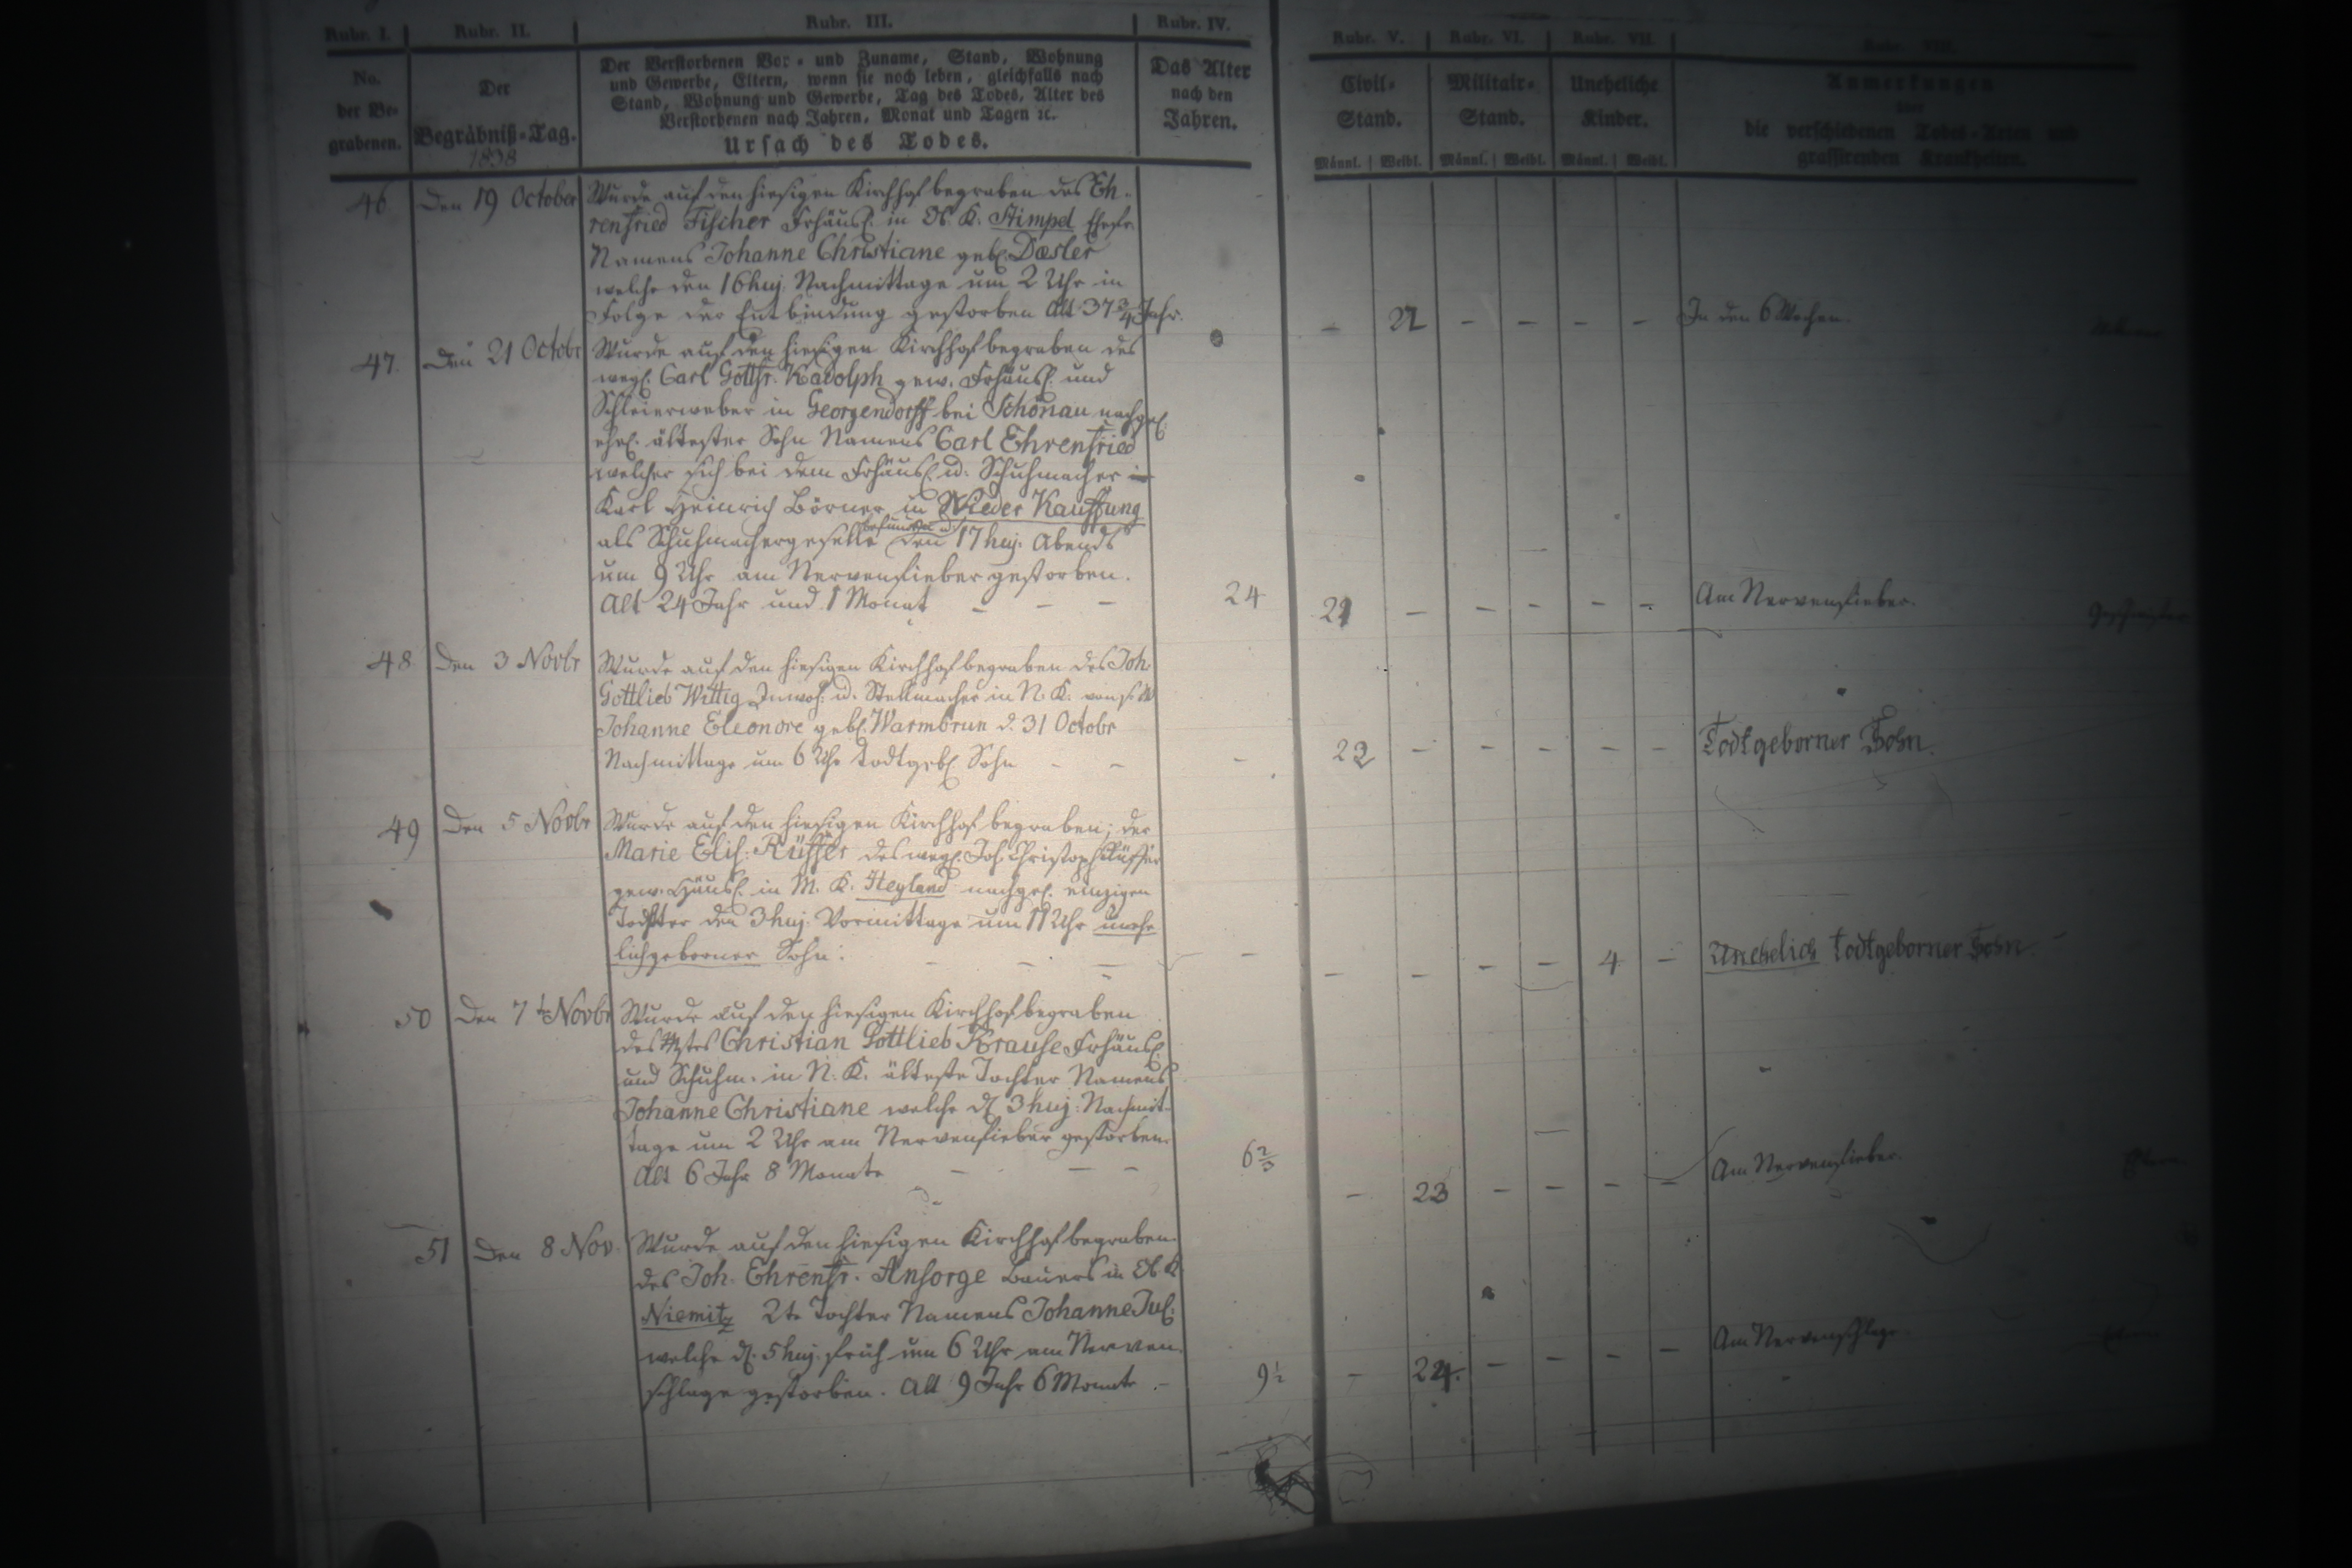 Rubr. I. Rubr. II. Rubr. III. Rubr. IV. Rubr. V. Rubr. VI. Rubr. VII. Rubr. VIII.
No. der Be-grabenen.
Der Begräbniß-Tag.
1838
Der Verstorbenen Vor- und Zuname, Stand, Wohnung
und Gewerbe, Eltern, wenn sie noch leben, gleichfalls nach
Stand, Wohnung und Gewerbe, Tag des Todes, Alter des
Verstorbenen nach Jahren, Monat und Tagen ꝛc.
Ursach des Todes.
Das Alter
nach den
Jahren.
Civil-
Stand.
Männl. Weibl.
Militair-
Stand.
Männl. Weibl.
Uneheliche
Kinder.
Männl. Weibl.
Anmerkungen
über
die verschiedenen Todes-Arten und
grassirenden Krankheiten.
46 Den 19 October Wurde auf den hiesigen Kirchhof begraben des Eh-
renfried Fischer Frhäusl. in Ob. K. Stimpel Ehefr.
Namens Johanne Christiane geb. Dæsler
welche den 16 huj. Nachmittage um 2 Uhr in
Folge der Entbindung gestorben Alt 37 3/4 Jahr.
- 22 - - - - In den 6 Wochen.
47. Den 21 Octobr Wurde auf den hiesigen Kirchhof begraben des
weyl. Carl Gottfr. Kadolph gew. Frhäusl. und
Schleierweber in Georgendorff bei Schönau nachgel.
ehel. ältester Sohn Namens Carl Ehrenfried
welcher sich bei dem Frhäusl. u. Schuhmacher
Karl Heinrich Börner in Nieder Kauffung
als Schuhmachergeselle befunden u. den 17 huj. Abends
um 9 Uhr am Nervenfieber gestorben.
Alt 24 Jahr und 1 Monat - - - 24 21 - - - - - Am Nervenfieber.
48. Den 3 Novbr Wurde auf den hiesigen Kirchhof begraben des Joh.
Gottlieb Wittig Inwoh. u. Stellmacher in N. K. von s. W
Johanne Eleonore geb. Warmbrun d. 31 Octobr
Nachmittage um 6 Uhr todtgeb. Sohn - - - 22 - - - - - Todtgeborner Sohn.
49 Den 5 Novbr Wurde auf den hiesigen Kirchhof begraben; der
Marie Elis: Rüffer des weyl. Joh. Christoph Rüffer
gew. Häusl. in M. K. Heyland nachgel. einzigen
Tochter den 3 huj. Vormittage um 11 Uhr unehe
lichgeborner Sohn. - - - - - - - - 4 - Unehelich todtgeborner Sohn
50 Den 7ten Novbr Wurde auf den hiesigen Kirchhof begraben
des Christian Gottlieb Krause Frhäusl.
und Schuhm. in N. K. älteste Tochter Namens
Johanne Christiane welche d. 3 huj. Nachmit-
tage um 2 Uhr am Nervenfieber gestorben.
Alt 6 Jahr 8 Monate - - - 6 2/3 - 23 - - - - Am Nervenfieber.
51 Den 8 Nov. Wurde auf den hiesigen Kirchhof begraben.
des Joh. Ehrenfr. Ansorge Bauers in Ob. K.
Niemitz 2te Tochter Namens Johanne Jul.
welche d. 5 huj. früh um 6 Uhr am Nerven-
schlage gestorben. Alt 9 Jahr 6 Monate - 9 1/2 - 24. - - - - Am Nervenschlage